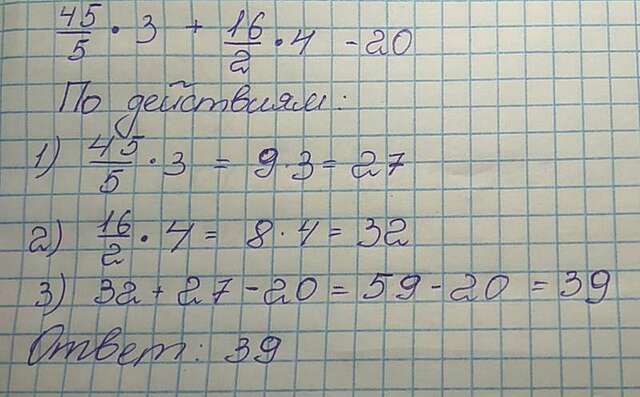 45/5 · 3 + 16/2 · 4 - 20
По действиям:
1) 45/5 · 3 = 9 · 3 = 27
2) 16/2 · 4 = 8 · 4 = 32
3) 32 + 27 - 20 = 59 - 20 = 39
Ответ: 39